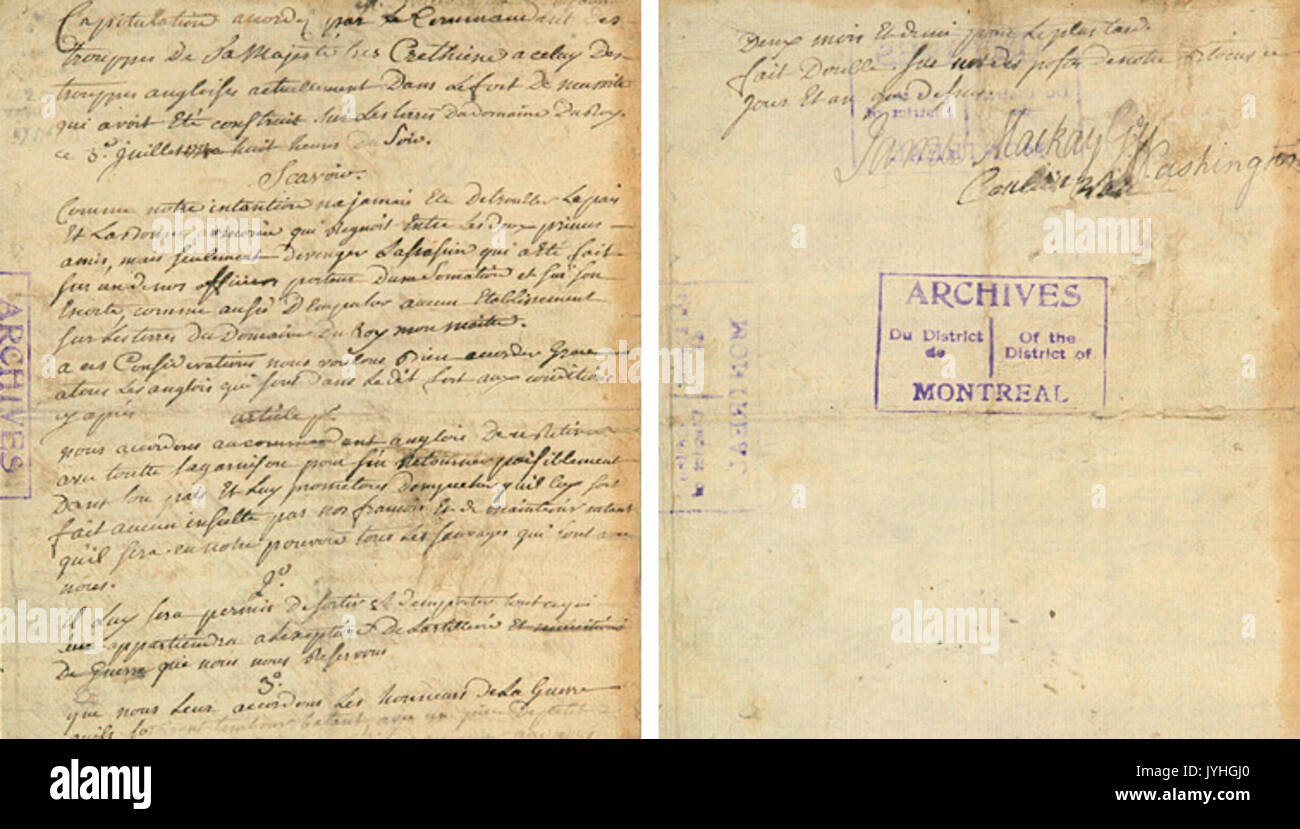 Capitulation accordez par Le Commandant des
trouppes De Sa Majesté tres Crethiene a celuy Des
trouppes angloises actuellement Dans Le fort De necessité
qui avoit Eté construit sur Les terres Du Domaine Du Roy.
ce 3e. juillet a huit heures Du Soir.
Scavoir.
Comme notre intantion na jamais Eté De troubler La paix
Et La bonne armonie qui Regnoit Entre Les Deux princes
amis, mais seulement De venger Lassassin qui a Eté fait
sur un De nos officiers porteur Dune Somation et sur son
Escorte, comme aussi D'Empecher aucun Etablissement
sur Les terres Du Domaine Du Roy mon maitre.
a ces Considerations nous voulons Bien accorder Grace
a tous Les anglois qui sont Dans Le Dit fort aux conditions
cy apres
article 1er
nous accordons au commandant anglois De se Retirer
avec toutte sa garnison pour s'en Retourner paisiblement
Dans son pais Et Luy promettons D'empecher qu'il Luy soit
fait aucun insulte par nos francois Et De maintenir autant
qu'il sera en notre pouvoir tous Les sauvages qui sont avec
nous.
2o.
il Luy sera permis De sortir Et D'emporter tout ce qui
leur appartiendra a Lexception De Lartillerie Et munitions
De Guerre que nous nous Reservons
3o.
que nous Leur accordons Les honneurs De La Guerre
qu'ils sortiront tambour batant avec une piece De petit
Deux mois Et demi pour Le plus tard.
fait Double sur un des postes de notre Blocus ce
jour Et an que dessus.
James Mackay Go
Washington
Coulon Villier
ARCHIVES
Du District de | Of the District of
MONTREAL
ARCHIVES
alamy
alamy
Image ID: JYHGJ0
www.alamy.com